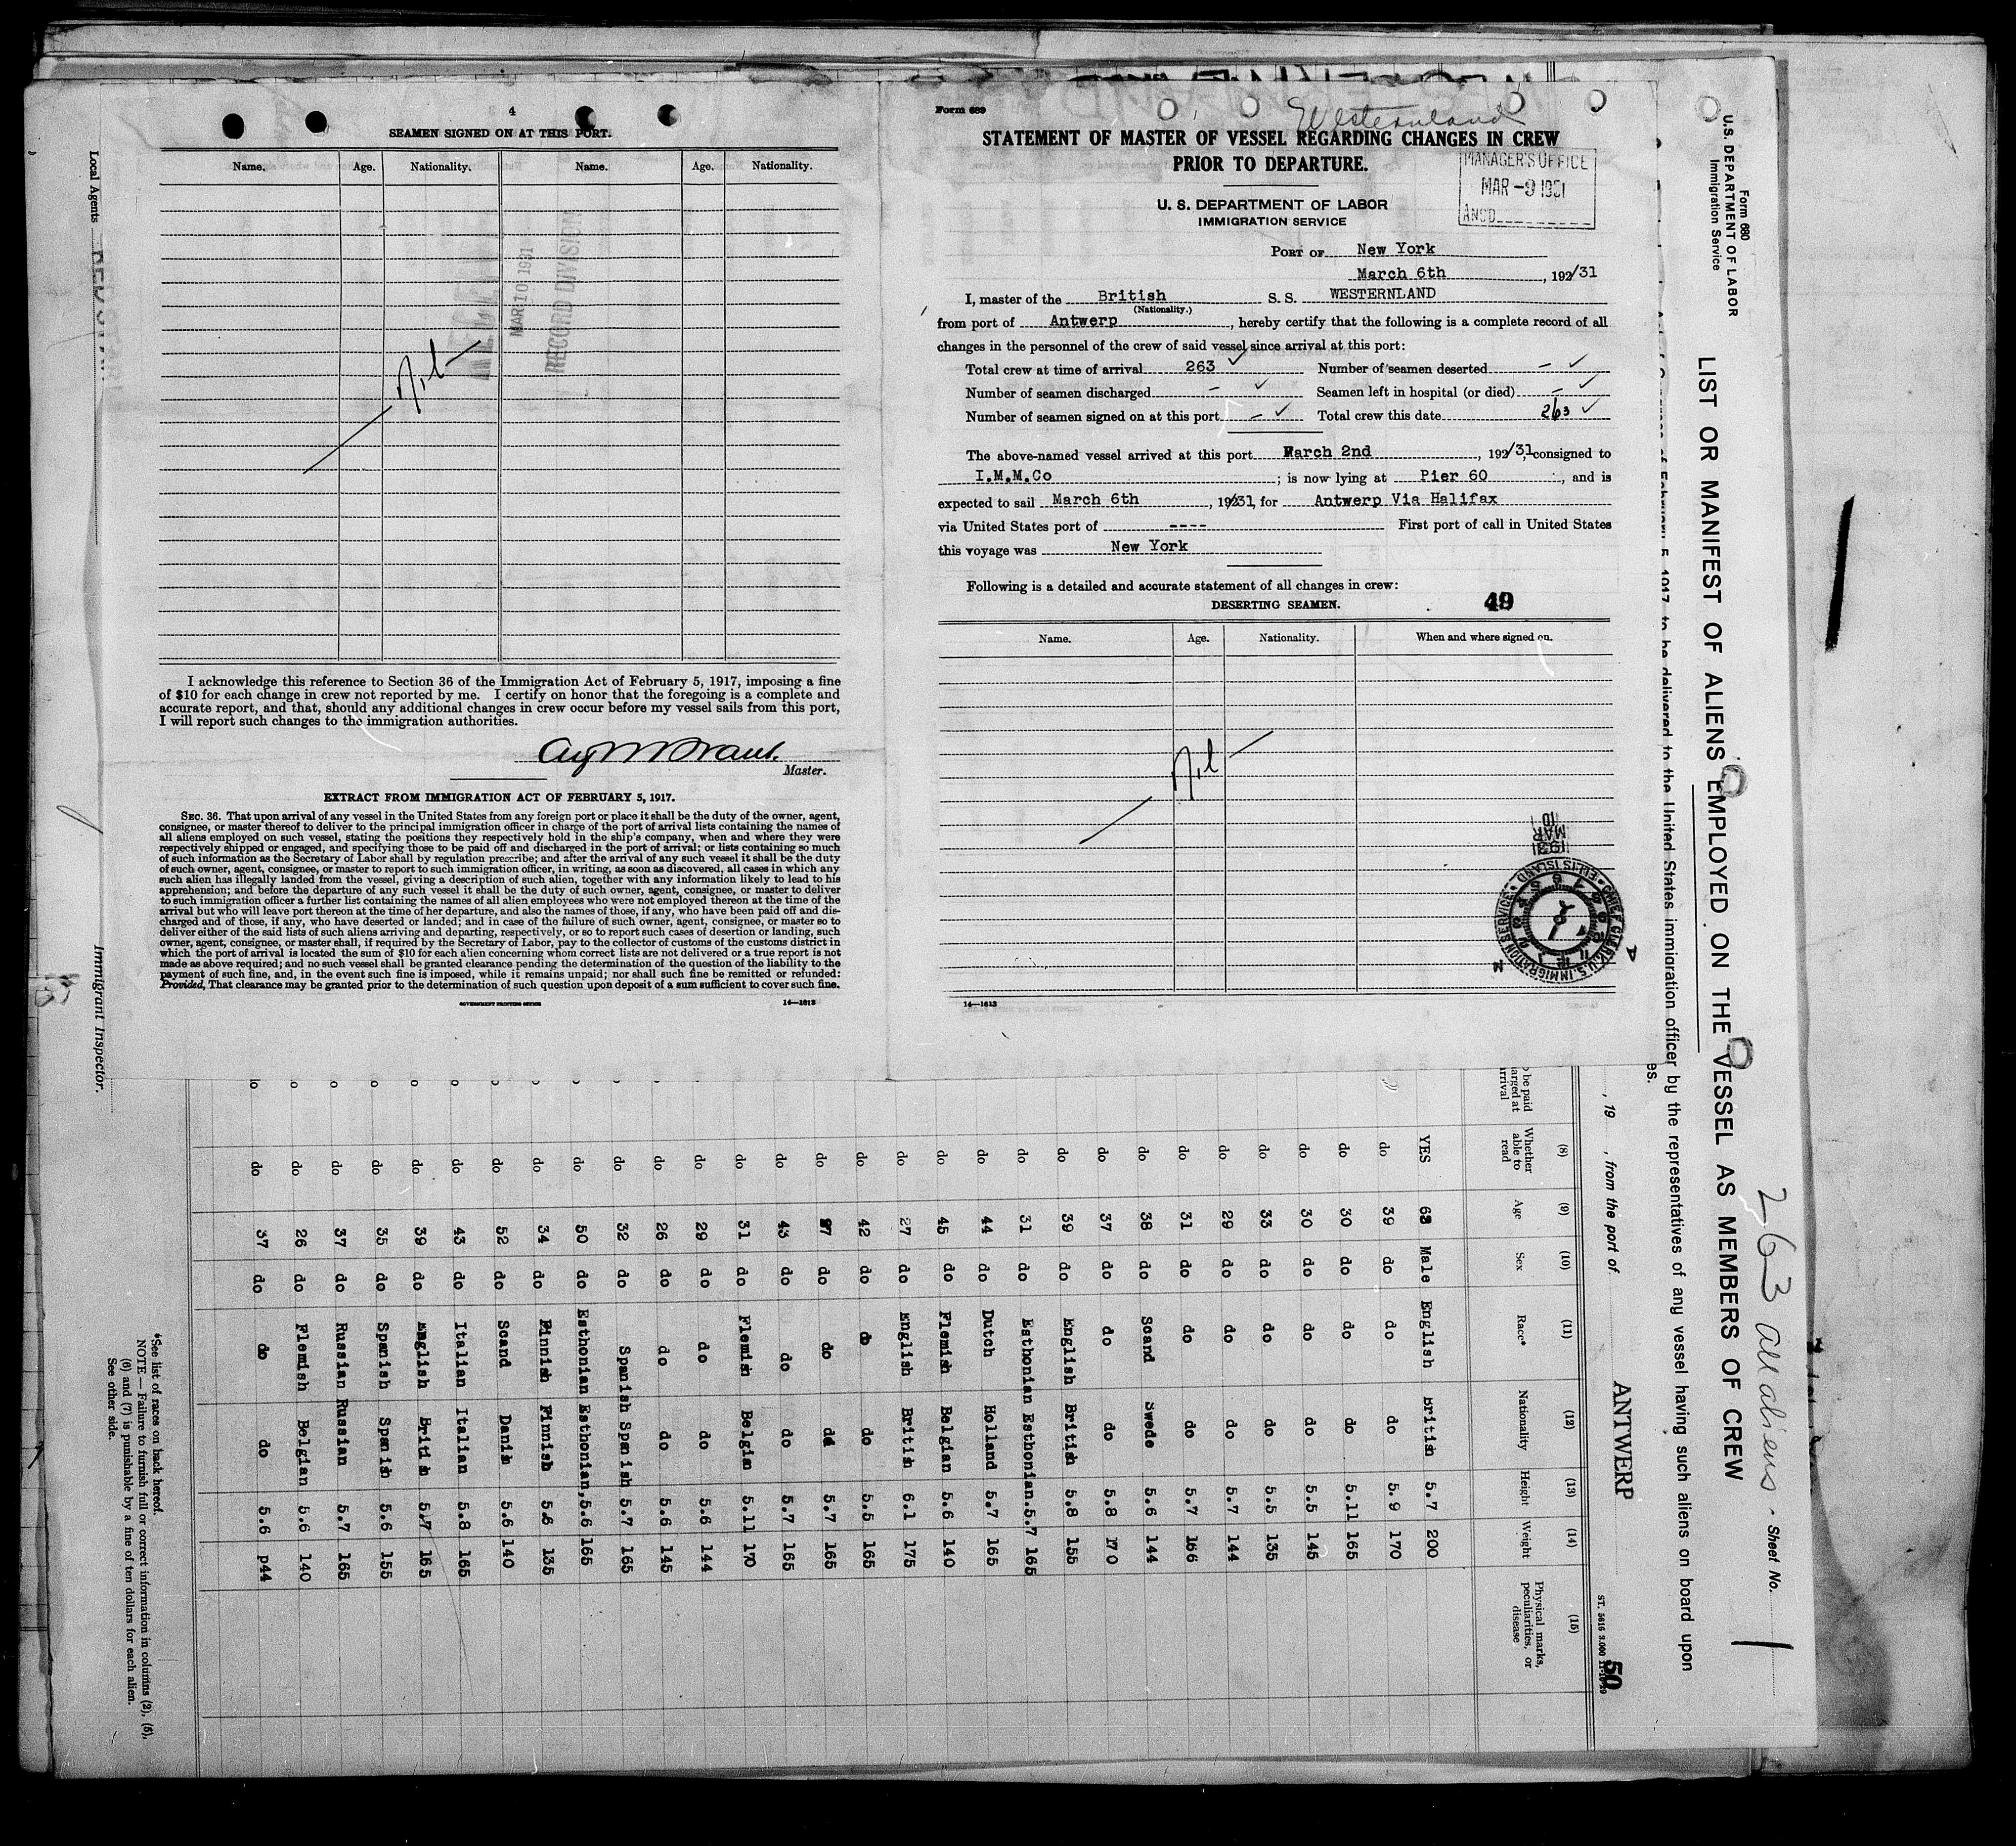 4
SEAMEN SIGNED ON AT THIS PORT.
Name. Age. Nationality. Name. Age. Nationality.
MAR 10 1931
RECORD DIVISION
Nil
I acknowledge this reference to Section 36 of the Immigration Act of February 5, 1917, imposing a fine
of $10 for each change in crew not reported by me. I certify on honor that the foregoing is a complete and
accurate report, and that, should any additional changes in crew occur before my vessel sails from this port,
I will report such changes to the immigration authorities.
Master.
EXTRACT FROM IMMIGRATION ACT OF FEBRUARY 5, 1917.
SEC. 36. That upon arrival of any vessel in the United States from any foreign port or place it shall be the duty of the owner, agent,
consignee, or master thereof to deliver to the principal immigration officer in charge of the port of arrival lists containing the names of
all aliens employed on such vessel, stating the positions they respectively hold in the ship's company, when and where they were
respectively shipped or engaged, and specifying those to be paid off and discharged in the port of arrival; or lists containing so much
of such information as the Secretary of Labor shall by regulation prescribe; and after the arrival of any such vessel it shall be the duty
of such owner, agent, consignee, or master to report to such immigration officer, in writing, as soon as discovered, all cases in which any
such alien has illegally landed from the vessel, giving a description of such alien, together with any information likely to lead to his
apprehension; and before the departure of any such vessel it shall be the duty of such owner, agent, consignee, or master to deliver
to such immigration officer a further list containing the names of all alien employees who were not employed thereon at the time of the
arrival but who will leave port thereon at the time of her departure, and also the names of those, if any, who have been paid off and dis-
charged and of those, if any, who have deserted or landed; and in case of the failure of such owner, agent, consignee, or master so to
deliver either of the said lists of such aliens arriving and departing, respectively, or so to report such cases of desertion or landing, such
owner, agent, consignee, or master shall, if required by the Secretary of Labor, pay to the collector of customs of the customs district in
which the port of arrival is located the sum of $10 for each alien concerning whom correct lists are not delivered or a true report is not
made as above required; and no such vessel shall be granted clearance pending the determination of the question of the liability to the
payment of such fine, and, in the event such fine is imposed, while it remains unpaid; nor shall such fine be remitted or refunded:
Provided, That clearance may be granted prior to the determination of such question upon deposit of a sum sufficient to cover such fine.
GOVERNMENT PRINTING OFFICE 14—1613
Form 689
Westernland
STATEMENT OF MASTER OF VESSEL REGARDING CHANGES IN CREW
PRIOR TO DEPARTURE.
MANAGER'S OFFICE
MAR -9 1931
ANS'D
U. S. DEPARTMENT OF LABOR
IMMIGRATION SERVICE
PORT OF New York
March 6th, 192/31
I, master of the British S. S. WESTERNLAND
(Nationality.)
from port of Antwerp, hereby certify that the following is a complete record of all
changes in the personnel of the crew of said vessel since arrival at this port:
Total crew at time of arrival 263 ✓ Number of seamen deserted – ✓
Number of seamen discharged – ✓ Seamen left in hospital (or died) – ✓
Number of seamen signed on at this port – ✓ Total crew this date 263 ✓
The above-named vessel arrived at this port March 2nd, 192/31, consigned to
I.M.M.Co; is now lying at Pier 60, and is
expected to sail March 6th, 19231, for Antwerp Via Halifax
via United States port of ---- First port of call in United States
this voyage was New York
Following is a detailed and accurate statement of all changes in crew:
DESERTING SEAMEN. 49
Name. Age. Nationality. When and where signed on.
Nil
1931
MAR
10
CHIEF CLERK U.S. IMMIGRATION SERVICE • ELLIS ISLAND
14—1613
Form 680
U.S. DEPARTMENT OF LABOR
Immigration Service
LIST OR MANIFEST OF ALIENS EMPLOYED ON THE VESSEL AS MEMBERS OF CREW
263 all aliens. Sheet No. 1
of February 5, 1917, to be delivered to the United States immigration officer by the representatives of any vessel having such aliens on board upon
, 19 , from the port of ANTWERP
ST. 3616 50
(8) (9) (10) (11) (12) (13) (14) (15)
Whether able to read Age Sex Race* Nationality Height Weight Physical marks, peculiarities, or disease
YES 63 Male English British 5.7 200
do 39 do do do 5.9 170
do 30 do do do 5.11 165
do 30 do do do 5.5 145
do 33 do do do 5.5 135
do 29 do do do 5.7 144
do 31 do do do 5.7 166
do 38 do Scand Swede 5.6 144
do 37 do do do 5.8 170
do 39 do English British 5.8 155
do 31 do Esthonian Esthonian. 5.7 165
do 44 do Dutch Holland 5.7 165
do 45 do Flemish Belgian 5.6 140
do 27 do English British 6.1 175
do 42 do do do 5.5 165
do 27 do do do 5.7 165
do 43 do do do 5.7 165
do 31 do Flemish Belgian 5.11 170
do 29 do do do 5.6 144
do 26 do do do 5.6 145
do 32 do Spanish Spanish 5.7 165
do 50 do Esthonian Esthonian, 5.6 165
do 34 do Finnish Finnish 5.6 135
do 52 do Scand Danis 5.6 140
do 43 do Italian Italian 5.8 165
do 39 do English British 5.7 165
do 35 do Spanish Spanish 5.6 155
do 37 do Russian Russian 5.7 165
do 26 do Flemish Belgian 5.6 140
do 37 do do do 5.6 p44
*See list of races on back hereof.
NOTE — Failure to furnish full or correct information in columns (2), (5),
(6) and (7) is punishable by a fine of ten dollars for each alien.
See other side.
Local Agents
Immigrant Inspector.